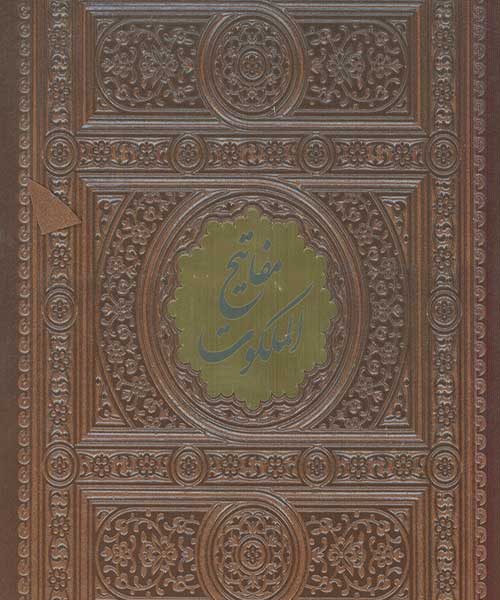 مفاتیح
الملکوت